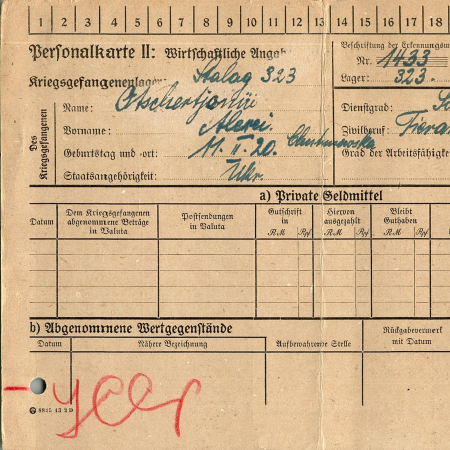 1 2 3 4 5 6 7 8 9 10 11 12 13 14 15 16 17 18
Personalkarte II: Wirtschaftliche Angab
Beschriftung der Erkennungsm
Nr. 1433
Kriegsgefangenenlager: Stalag 323
Lager: 323.
Des Kriegsgefangenen
Name:
Dienstgrad:
Vorname: Alexei.
Zivilberuf:
Geburtstag und -ort: 11. II. 20.
Grad der Arbeitsfähigke
Staatsangehörigkeit: Ukr.
a) Private Geldmittel
Datum
Dem Kriegsgefangenen abgenommene Beträge in Valuta
Postsendungen in Valuta
Gutschrift in
Hiervon ausgezahlt
Bleibt Guthaben
RM Rpf RM Rpf RM Rpf
b) Abgenommene Wertgegenstände
Datum
Nähere Bezeichnung
Aufbewahrende Stelle
Rückgabevermerk mit Datum